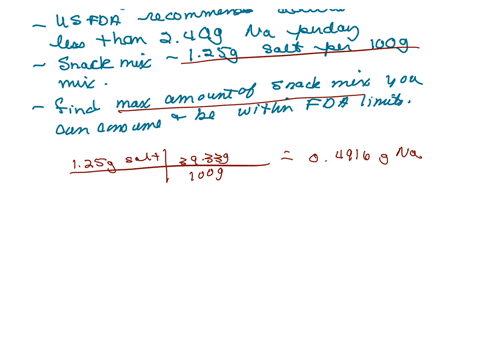 - US FDA recommends
less than 2.40g Na per day
~ Snack mix ~ 1.25g salt per 100g
mix.
- find max amount of snack mix you
can consume & be within FDA limits.
1.25g salt | 39.33g = 0.4916 g Na
100g